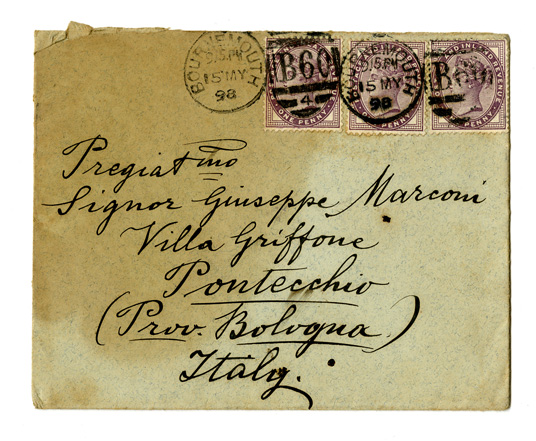 BOURNEMOUTH
5.15.PM
15 MY
98
B60
4
ONE PENNY
BOURNEMOUTH
5.15.PM
15 MY
98
PENNY
B60
AND INLAND REVENUE
ONE PENNY
Pregiatmo
Signor Giuseppe Marconi
Villa Griffone
Pontecchio
(Prov. Bologna)
Italy.